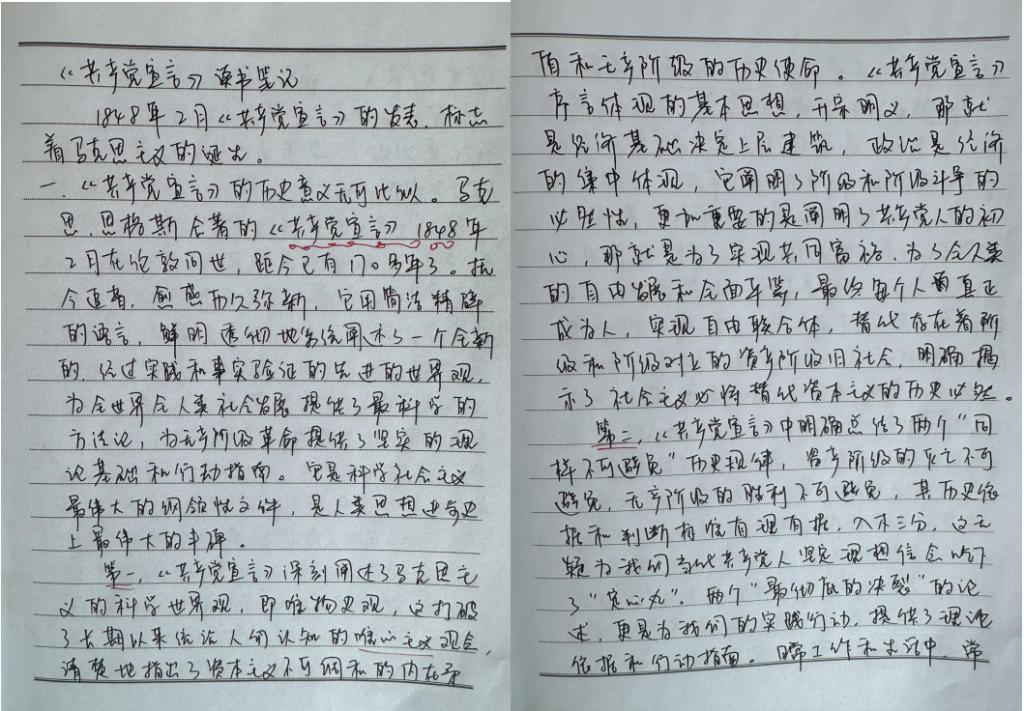 《共产党宣言》读书笔记
1848年2月《共产党宣言》的发表，标志
着马克思主义的诞生。
一.《共产党宣言》的历史意义无可比拟。马克
思.恩格斯合著的《共产党宣言》1848年
2月在伦敦问世，距今已有170多年了。抚
今追昔，愈感历久弥新，它用简洁精辟
的语言，鲜明透彻地系统阐述了一个全新
的.经过实践和事实验证的先进的世界观，
为全世界全人类社会发展提供了最科学的
方法论，为无产阶级革命提供了坚实的理
论基础和行动指南。它是科学社会主义
最伟大的纲领性文件，是人类思想进步史
上最伟大的丰碑。
第一，《共产党宣言》深刻阐述了马克思主
义的科学世界观，即唯物史观，这打破
了长期以来统治人们认知的唯心主义观念，
清楚地指出了资本主义不可调和的内在矛
盾和无产阶级的历史使命。《共产党宣言》
序言体现的基本思想，开宗明义，那就
是经济基础决定上层建筑，政治是经济
的集中体现，它阐明了阶级和阶级斗争的
必然性，更加重要的是阐明了共产党人的初
心，那就是为了实现共同富裕.为了全人类
的自由发展和全面平等，最终每个人真正
成为人，实现自由联合体，替代存在着阶
级和阶级对立的资产阶级旧社会，明确揭
示了社会主义必将替代资本主义的历史必然。
第二，《共产党宣言》中明确总结了两个“同
样不可避免”历史规律，资产阶级的灭亡不可
避免，无产阶级的胜利不可避免，其历史依
据和判断精准有理有据，入木三分，这无
疑为我们当代共产党人坚定理想信念吃下
了“定心丸”.两个“最彻底的决裂”的论
述，更是为我们的实践行动，提供了理论
依据和行动指南。日常工作和生活中，常